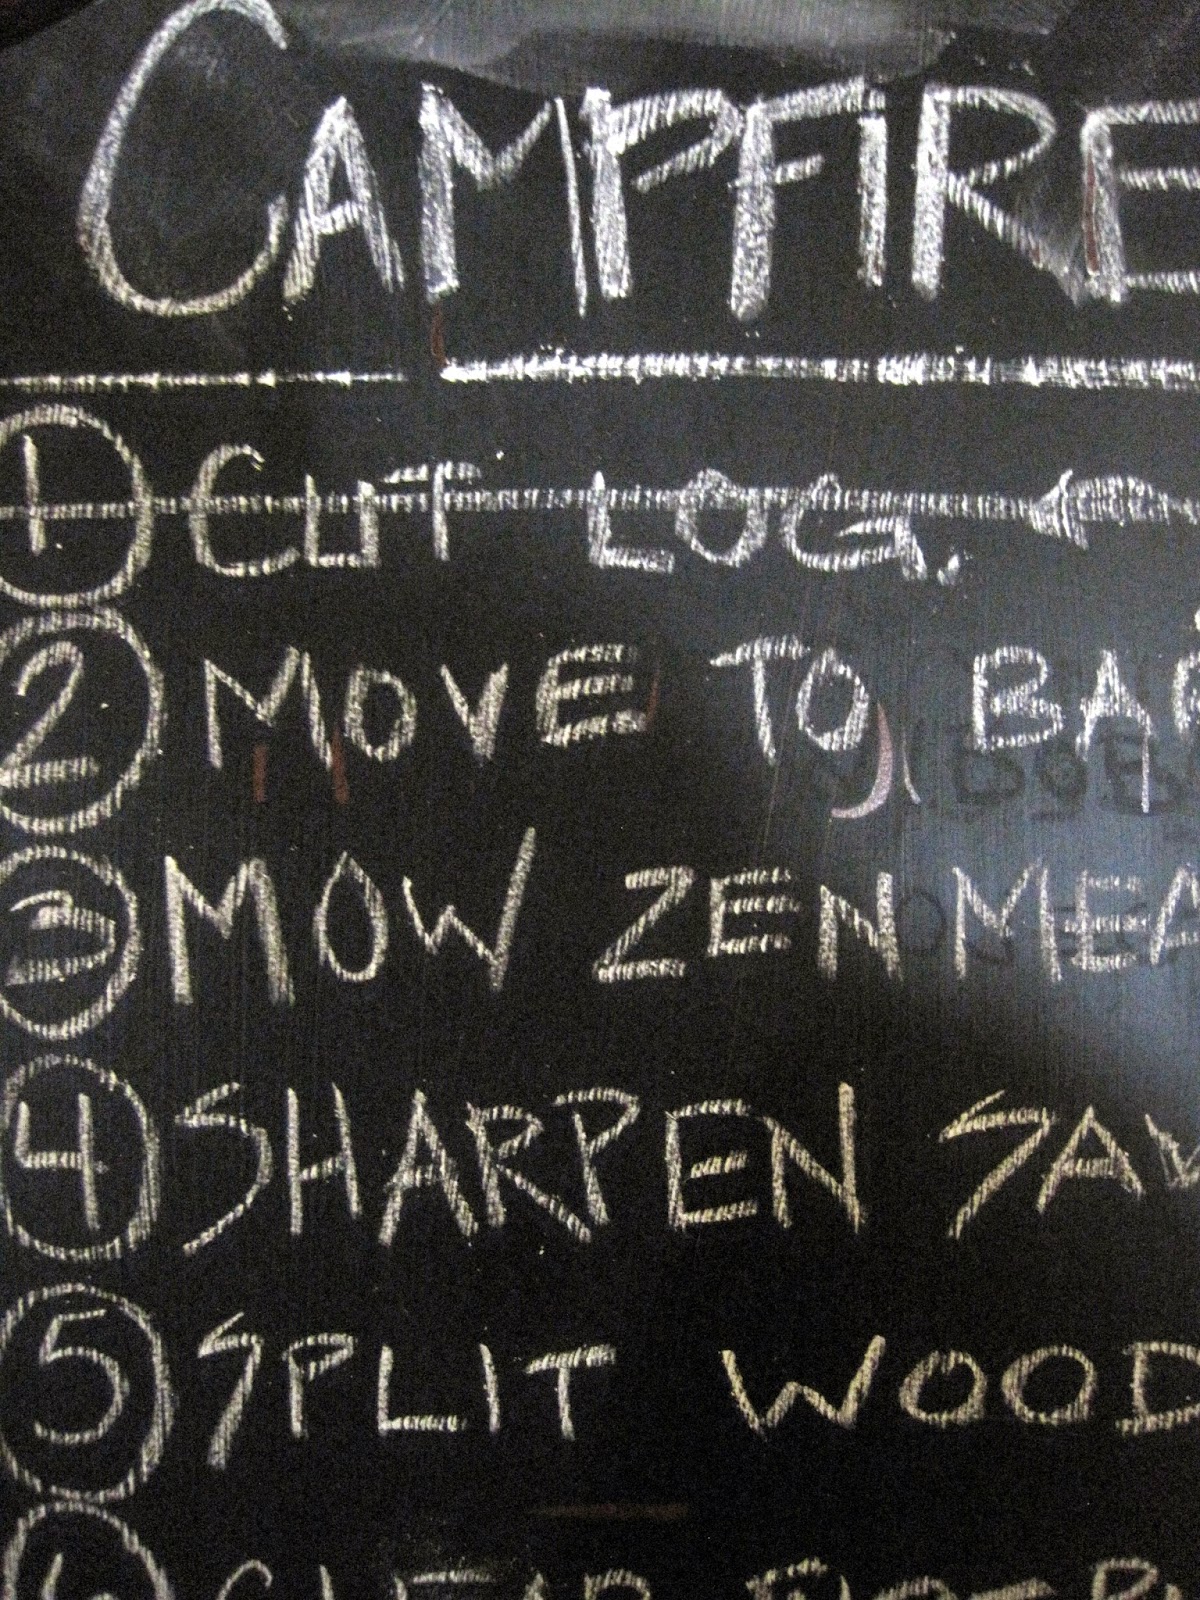 CAMPFIRE
1 CUT LOG.
2 MOVE TO
3 MOW ZEN
4 SHARPEN SAW
5 SPLIT WOOD
6 CLEAR